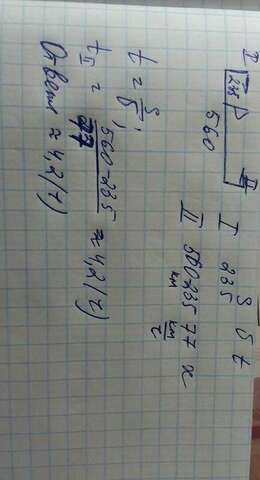 I 235 560 II
S v t
I 235
II 560-235 км 77 км/ч x
t = S/v,
t II = (560-235)/77 ≈ 4,2 (ч)
Ответ ≈ 4,2 (ч)